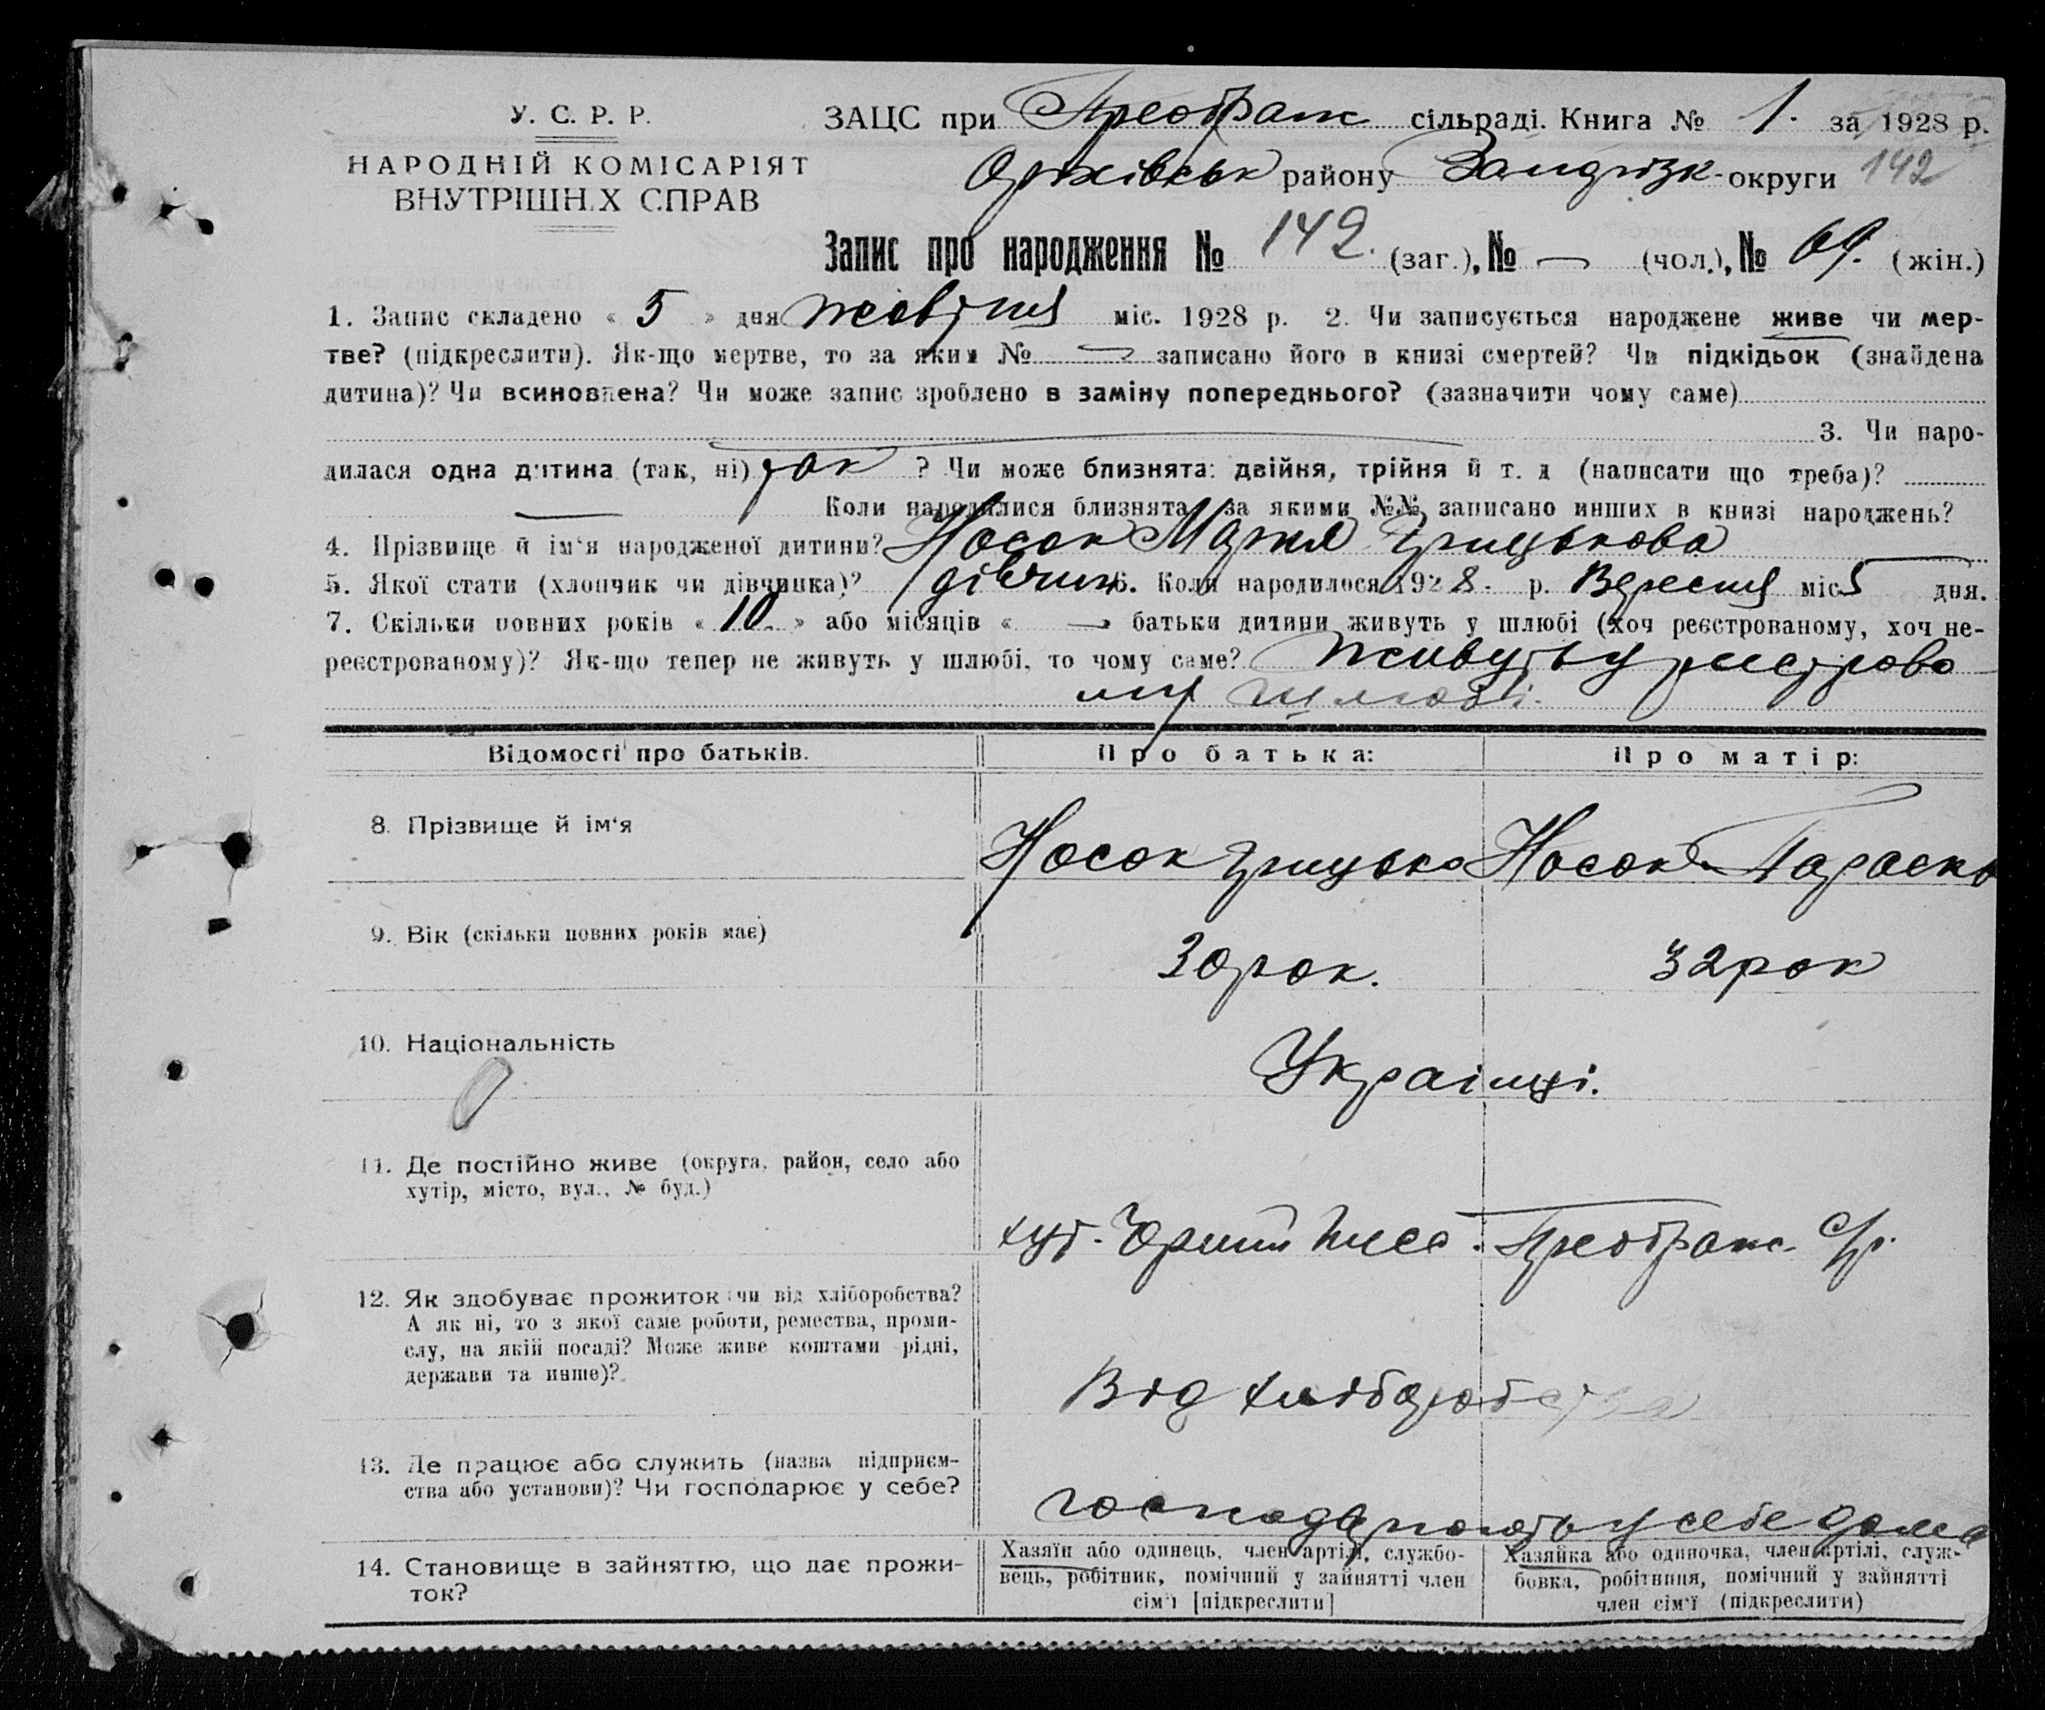 У. С. Р. Р.
НАРОДНІЙ КОМІСАРІЯТ
ВНУТРІШНІХ СПРАВ
ЗАЦС при Преображ сільраді. Книга № 1. за 1928 р.
Оріхівськ району Запорізк округи 142
Запис про народження № 142. (заг.), № — (чол.), № 69. (жін.)
1. Запис складено « 5 » дня жовтня міс. 1928 р. 2. Чи записується народжене живе чи мер-
тве? (підкреслити). Як-що мертве, то за яким № — записано його в книзі смертей? Чи підкідьок (знайдена
дитина)? Чи всиновлена? Чи може запис зроблено в заміну попереднього? (зазначити чому саме)
3. Чи наро-
дилася одна дитина (так, ні) так ? Чи може близнята: двійня, трійня й т. д (написати що треба)?
— Коли народилися близнята, за якими №№ записано инших в книзі народжень?
4. Прізвище й ім'я народженої дитини? Носок Марія Грицькова
5. Якої стати (хлопчик чи дівчинка)? дівчин 6. Коли народилося 1928. р. Вересня міс 5 дня.
7. Скільки повних років « 10 » або місяців « — батьки дитини живуть у шлюбі (хоч реєстрованому, хоч не-
реєстрованому)? Як-що тепер не живуть у шлюбі, то чому саме? живуть у реєстрова
ну шлюбі.
Відомості про батьків.
Про батька:
Про матір:
8. Прізвище й ім'я
Носок Грицько
Носок Параска
9. Вік (скільки повних років має)
30 рок.
32 рок
10. Національність
Українці.
11. Де постійно живе (округа, район, село або
хутір, місто, вул., № буд.)
хут. Преображ. с/р.
12. Як здобуває прожиток (чи від хліборобства?
А як ні, то з якої саме роботи, ремества, проми-
слу, на якій посаді? Може живе коштами рідні,
держави та инше)?
Від хліборобства
13. Де працює або служить (назва підприєм-
ства або установи)? Чи господарює у себе?
господарюють у себе дома
14. Становище в зайняттю, що дає прожи-
ток?
Хазяїн або одинець, член артілі, службо-
вець, робітник, помічний у зайнятті член
сім'ї [підкреслити]
Хазяйка або одиночка, член артілі, служ-
бовка, робітниця, помічний у зайнятті
член сім'ї (підкреслити)